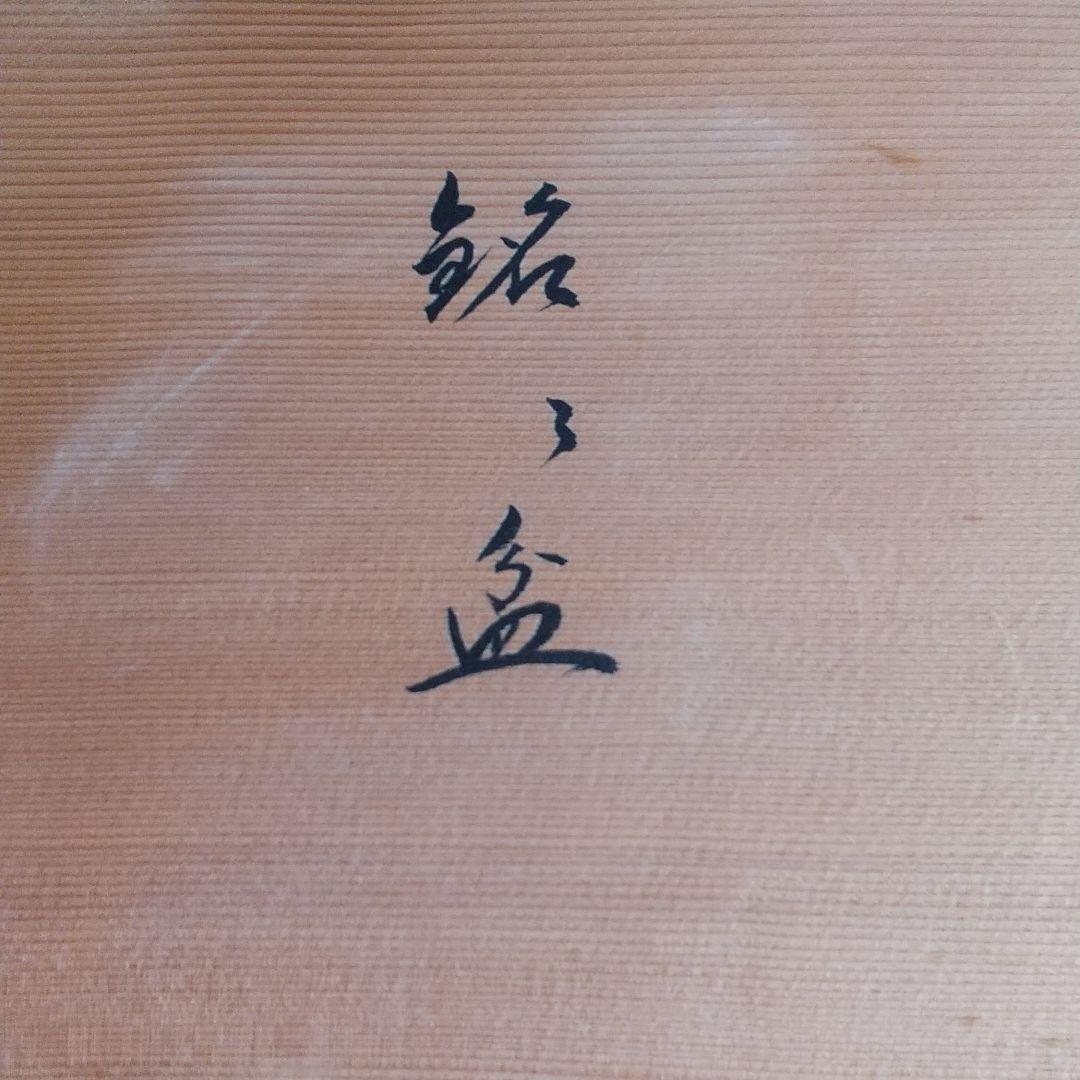 銘々盆